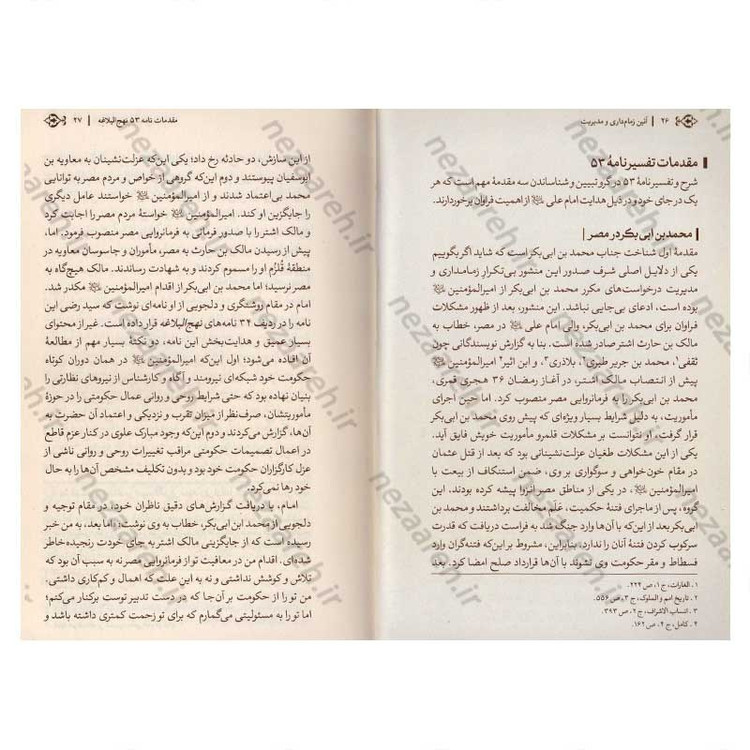 ۲۶ | آئین زمام‌داری و مدیریت
مقدمات تفسیر نامهٔ ۵۳
شرح و تفسیر نامهٔ ۵۳ در گرو تبیین و شناساندن سه مقدمهٔ مهم است که هر
یک در جای خود و در ذیل هدایت امام علی علیه‌السلام از اهمیت فراوان برخوردارند.
محمد بن ابی‌بکر در مصر
مقدمهٔ اول شناخت جناب محمد بن ابی‌بکر است که شاید اگر بگوییم
یکی از دلایل اصلی شرف صدور این منشور بی‌تکرار زمامداری و
مدیریت درخواست‌های مکرر محمد بن ابی‌بکر از امیرالمؤمنین علیه‌السلام
بوده است، ادعای بی‌جایی نباشد. این منشور، بعد از ظهور مشکلات
فراوان برای محمد بن ابی‌بکر، والی امام علی علیه‌السلام در مصر، خطاب به
مالک بن حارث اشتر صادر شده است. بنا به گزارش نویسندگانی چون
ثقفی۱، محمد بن جریر طبری۲، بلاذری۳ و ابن اثیر۴ امیرالمؤمنین علیه‌السلام
پیش از انتصاب مالک اشتر، در آغاز رمضان ۳۶ هجری قمری،
محمد بن ابی‌بکر را به فرمانروایی مصر منصوب کرد. اما حین اجرای
مأموریت، به دلیل شرایط بسیار ویژه‌ای که پیش روی محمد بن ابی‌بکر
قرار گرفت، او نتوانست بر مشکلات قلمرو مأموریت خویش فایق آید.
یکی از این مشکلات طغیان عزلت‌نشینانی بود که بعد از قتل عثمان
در مقام خون‌خواهی و سوگواری بر وی، ضمن استنکاف از بیعت با
امیرالمؤمنین علیه‌السلام، در یکی از مناطق مصر انزوا پیشه کرده بودند. این
گروه، پس از ماجرای فتنهٔ حکمیت، علم مخالفت برداشتند و محمد بن
ابی‌بکر بعد از این‌که با آن‌ها وارد جنگ شد به فراست دریافت که قدرت
سرکوب کردن فتنهٔ آنان را ندارد، بنابراین، مشروط بر این‌که فتنه‌گران وارد
فسطاط و مقر حکومت وی نشوند با آن‌ها قرارداد صلح امضا کرد. بعد
۱. الغارات، ج ۱، ص ۲۲۴.
۲. تاریخ امم و الملوک، ج ۳، ص ۵۵۶.
۳. انساب الاشراف، ج ۲، ص ۳۹۳.
۴. کامل، ج ۴، ص ۱۶۲.
مقدمات نامه ۵۳ نهج البلاغه | ۲۷
از این سازش، دو حادثه رخ داد؛ یکی این‌که عزلت‌نشینان به معاویه بن
ابوسفیان پیوستند و دوم این‌که گروهی از خواص و مردم مصر به توانایی
محمد بی‌اعتماد شدند و از امیرالمؤمنین علیه‌السلام خواستند عامل دیگری
را جایگزین او کند. امیرالمؤمنین علیه‌السلام خواستهٔ مردم مصر را اجابت کرد
و مالک اشتر را با صدور فرمانی به فرمانروایی مصر منصوب فرمود. اما،
پیش از رسیدن مالک بن حارث به مصر، مأموران و جاسوسان معاویه در
منطقهٔ قُلزُم او را مسموم کردند و به شهادت رساندند. مالک هیچ‌گاه به
مصر نرسید؛ اما محمد بن ابی‌بکر از اقدام امیرالمؤمنین علیه‌السلام مکدر شد.
امام در مقام روشنگری و دلجویی از او نامه‌ای نوشت که سید رضی این
نامه را در ردیف ۳۴ نامه‌های نهج‌البلاغه قرار داده است. غیر از محتوای
بسیار عمیق و هدایت‌بخش این نامه، دو نکتهٔ بسیار مهم از مطالعهٔ
آن افاده می‌شود؛ اول این‌که امیرالمؤمنین علیه‌السلام در همان دوران کوتاه
حکومت خود شبکه‌ای نیرومند و آگاه و کارشناس از نیروهای نظارتی را
بنیان نهاده بود که حتی شرایط روحی و روانی عمال حکومتی را در حوزهٔ
مأموریتشان، صرف‌نظر از میزان تقرب و نزدیکی و اعتماد آن حضرت به
آن‌ها، گزارش می‌کردند و دوم این‌که وجود مبارک علوی در کنار عزم قاطع
در اعمال تصمیمات حکومتی مراقب تغییرات روحی و روانی ناشی از
عزل کارگزاران حکومت خود بود و بدون تکلیف مشخص آن‌ها را به حال
خود رها نمی‌کرد.
امام، با دریافت گزارش‌های دقیق ناظران خود، در مقام توجیه و
دلجویی از محمد ابن ابی‌بکر، خطاب به وی نوشت: «اما بعد، به من خبر
رسیده است که از جایگزینی مالک اشتر به جای خودت رنجیده‌خاطر
شده‌ای. اقدام من در معافیت تو از فرمانروایی مصر نه به سبب آن بود که
تلاش و کوشش نداشتی و نه به این علت که اهمال و کم‌کاری داشتی.
من تو را از حکومت بر آن‌جا که در دست تدبیر توست برکنار می‌کنم؛
اما تو را به مسئولیتی می‌گمارم که برای تو زحمت کمتری داشته باشد و
nezaareh.ir
nezaareh.ir
nezaareh.ir
nezaareh.ir
nezaareh.ir
nezaareh.ir